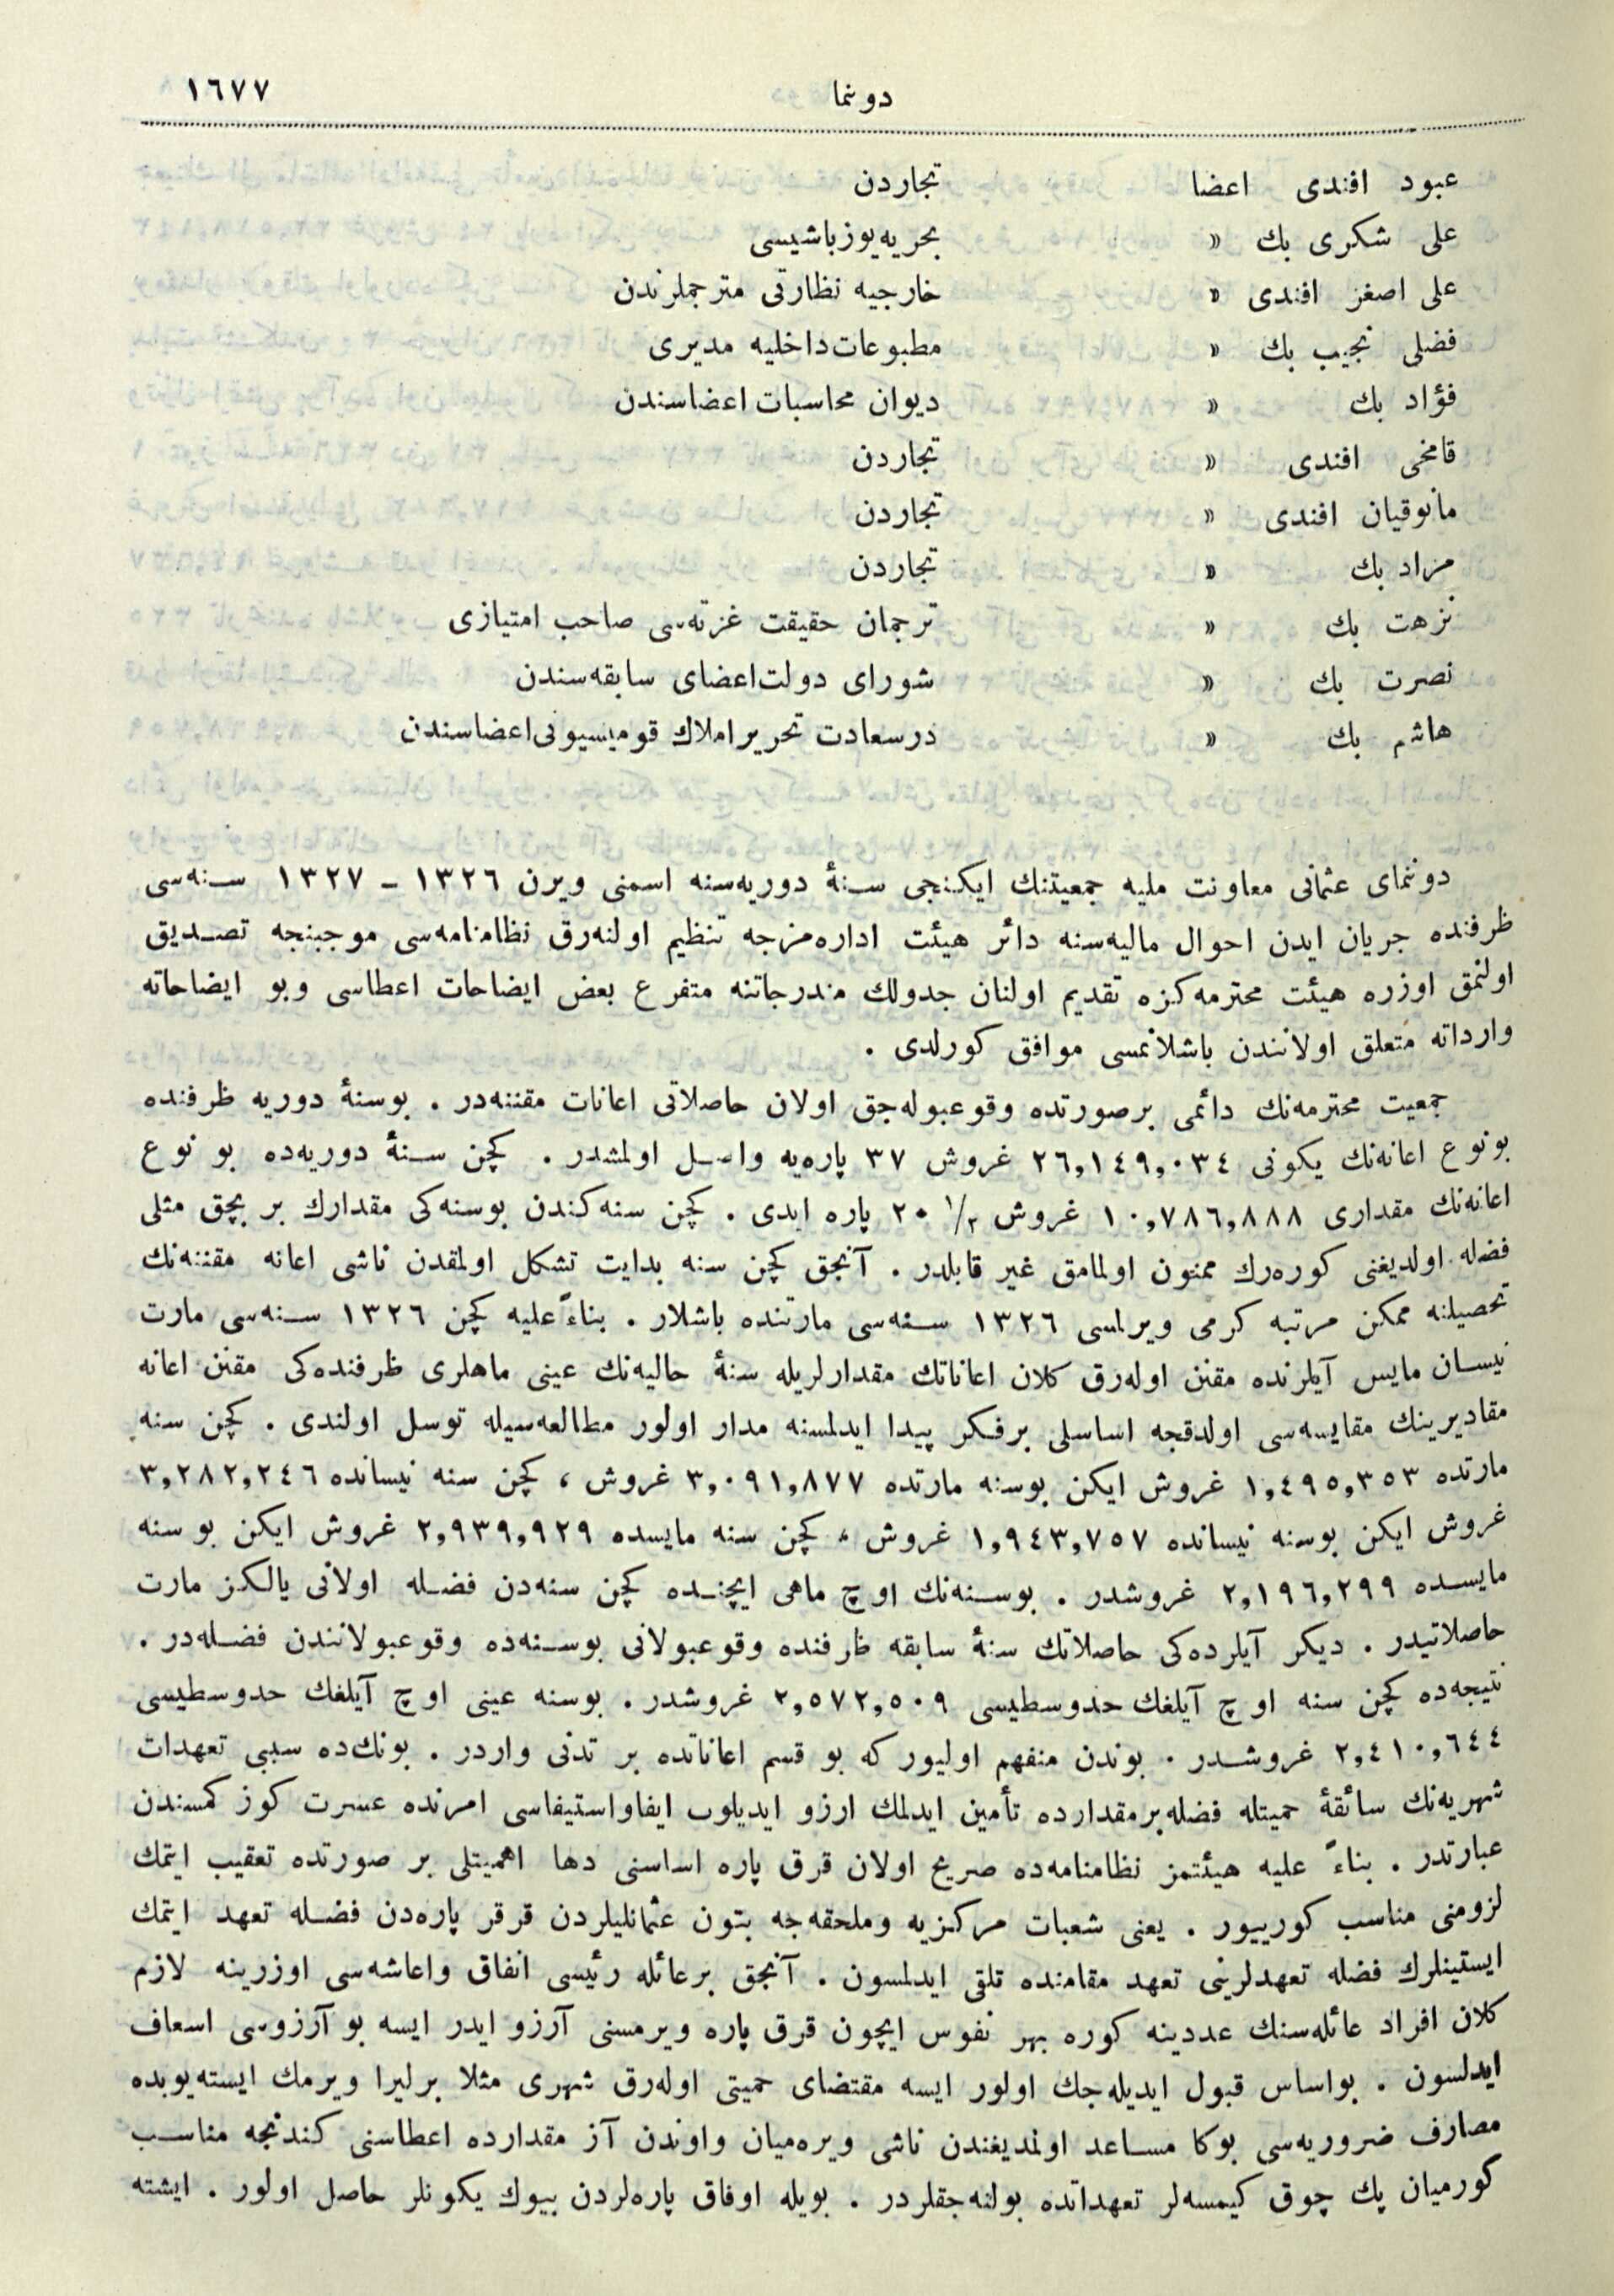 دونما ١٦٧٧
عبود افندی اعضا تجاردن
علی شکری بك » بحریه یوزباشیسی
علی اصغر افندی » خارجیه نظارتی مترجملرندن
فضلی نجیب بك » مطبوعات داخلیه مدیری
فؤاد بك » دیوان محاسبات اعضاسندن
قامخی افندی » تجاردن
مانوقیان افندی » تجاردن
مراد بك » تجاردن
نزهت بك » ترجمان حقیقت غزته‌سی صاحب امتیازی
نصرت بك » شورای دولت اعضای سابقه‌سندن
هاشم بك » درسعادت تحریر املاك قومیسیونی اعضاسندن
دونمای عثمانی معاونت ملیه جمعیتنك ایکنجی سنهٔ دوریه‌سنه اسمنی ویرن ١٣٢٦ - ١٣٢٧ سنه‌سی
ظرفنده جریان ایدن احوال مالیه‌سنه دائر هیئت اداره‌مزجه تنظیم اولنه‌رق نظامنامه‌سی موجبنجه تصدیق
اولنمق اوزره هیئت محترمه‌کزه تقدیم اولنان جدولك مندرجاتنه متفرع بعض ایضاحات اعطاسی وبو ایضاحاته
وارداته متعلق اولانندن باشلانمسی موافق کورلدی .
جمعیت محترمه‌نك دائمی برصورتده وقوعبوله‌جق اولان حاصلاتی اعانات مقننه‌در . بوسنهٔ دوریه ظرفنده
بونوع اعانه‌نك یکونی ٢٦,١٤٩,٠٣٤ غروش ٣٧ پاره‌یه واصل اولمشدر . کچن سنهٔ دوریه‌ده بو نوع
اعانه‌نك مقداری ١٠,٧٨٦,٨٨٨ غروش ٢٠ ١/٢ پاره ایدی . کچن سنه‌کندن بوسنه‌کی مقدارك بر بچق مثلی
فضله اولدیغنی کوره‌رك ممنون اولمامق غیر قابلدر . آنجق کچن سنه بدایت تشکل اولمقدن ناشی اعانه مقننه‌نك
تحصیلنه ممکن مرتبه کرمی ویرلمسی ١٣٢٦ سنه‌سی مارتنده باشلار . بناءً علیه کچن ١٣٢٦ سنه‌سی مارت
نیسان مایس آیلرنده مقنن اوله‌رق کلان اعاناتك مقدارلریله سنهٔ حالیه‌نك عینی ماهلری ظرفنده‌کی مقنن اعانه
مقادیرینك مقایسه‌سی اولدقجه اساسلی برفکر پیدا ایدلمسنه مدار اولور مطالعه‌سیله توسل اولندی . کچن سنه
مارتده ١,٤٩٥,٣٥٣ غروش ایکن بوسنه مارتده ٣,٠٩١,٨٧٧ غروش ، کچن سنه نیسانده ٣,٢٨٢,٢٤٦
غروش ایکن بوسنه نیسانده ١,٩٤٣,٧٥٧ غروش ، کچن سنه مایسده ٢,٩٣٩,٩٢٩ غروش ایکن بو سنه
مایسده ٢,١٩٦,٢٩٩ غروشدر . بوسنه‌نك اوچ ماهی ایچنده کچن سنه‌دن فضله اولانی یالکز مارت
حاصلاتیدر . دیکر آیلرده‌کی حاصلاتك سنهٔ سابقه ظرفنده وقوعبولانی بوسنه‌ده وقوعبولانندن فضله‌در .
نتیجه‌ده کچن سنه اوچ آیلغك حدوسطیسی ٢,٥٧٢,٥٠٩ غروشدر . بوسنه عینی اوچ آیلغك حدوسطیسی
٢,٤١٠,٦٤٤ غروشدر . بوندن منفهم اولیور که بو قسم اعاناتده بر تدنی واردر . بونك‌ده سببی تعهدات
شهریه‌نك سائقهٔ حمیتله فضله برمقدارده تأمین ایدلمك ارزو ایدیلوب ایفا واستیفاسی امرنده عسرت کوز کمسندن
عبارتدر . بناءً علیه هیئتمز نظامنامه‌ده صریح اولان قرق پاره اساسنی دها اهمیتلی بر صورتده تعقیب ایتمك
لزومنی مناسب کورییور . یعنی شعبات مرکزیه وملحقه‌جه بتون عثمانلیلردن قرقر پاره‌دن فضله تعهد ایتمك
ایستینلرك فضله تعهدلرینی تعهد مقامنده تلقی ایدلمسون . آنجق برعائله رئیسی انفاق واعاشه‌سی اوزرینه لازم
کلان افراد عائله‌سنك عددینه کوره بهر نفوس ایچون قرق پاره ویرمسنی آرزو ایدر ایسه بو آرزوسی اسعاف
ایدلسون . بواساس قبول ایدیله‌جك اولور ایسه مقتضای حمیتی اوله‌رق شهری مثلا برلیرا ویرمك ایسته‌یوبده
مصارف ضروریه‌سی بوکا مساعد اولمدیغندن ناشی ویره‌میان واوندن آز مقدارده اعطاسنی کندنجه مناسب
کورمیان پك چوق کیمسه‌لر تعهداتده بولنه‌جقلردر . بویله اوفاق پاره‌لردن بیوك یکونلر حاصل اولور . ایشته